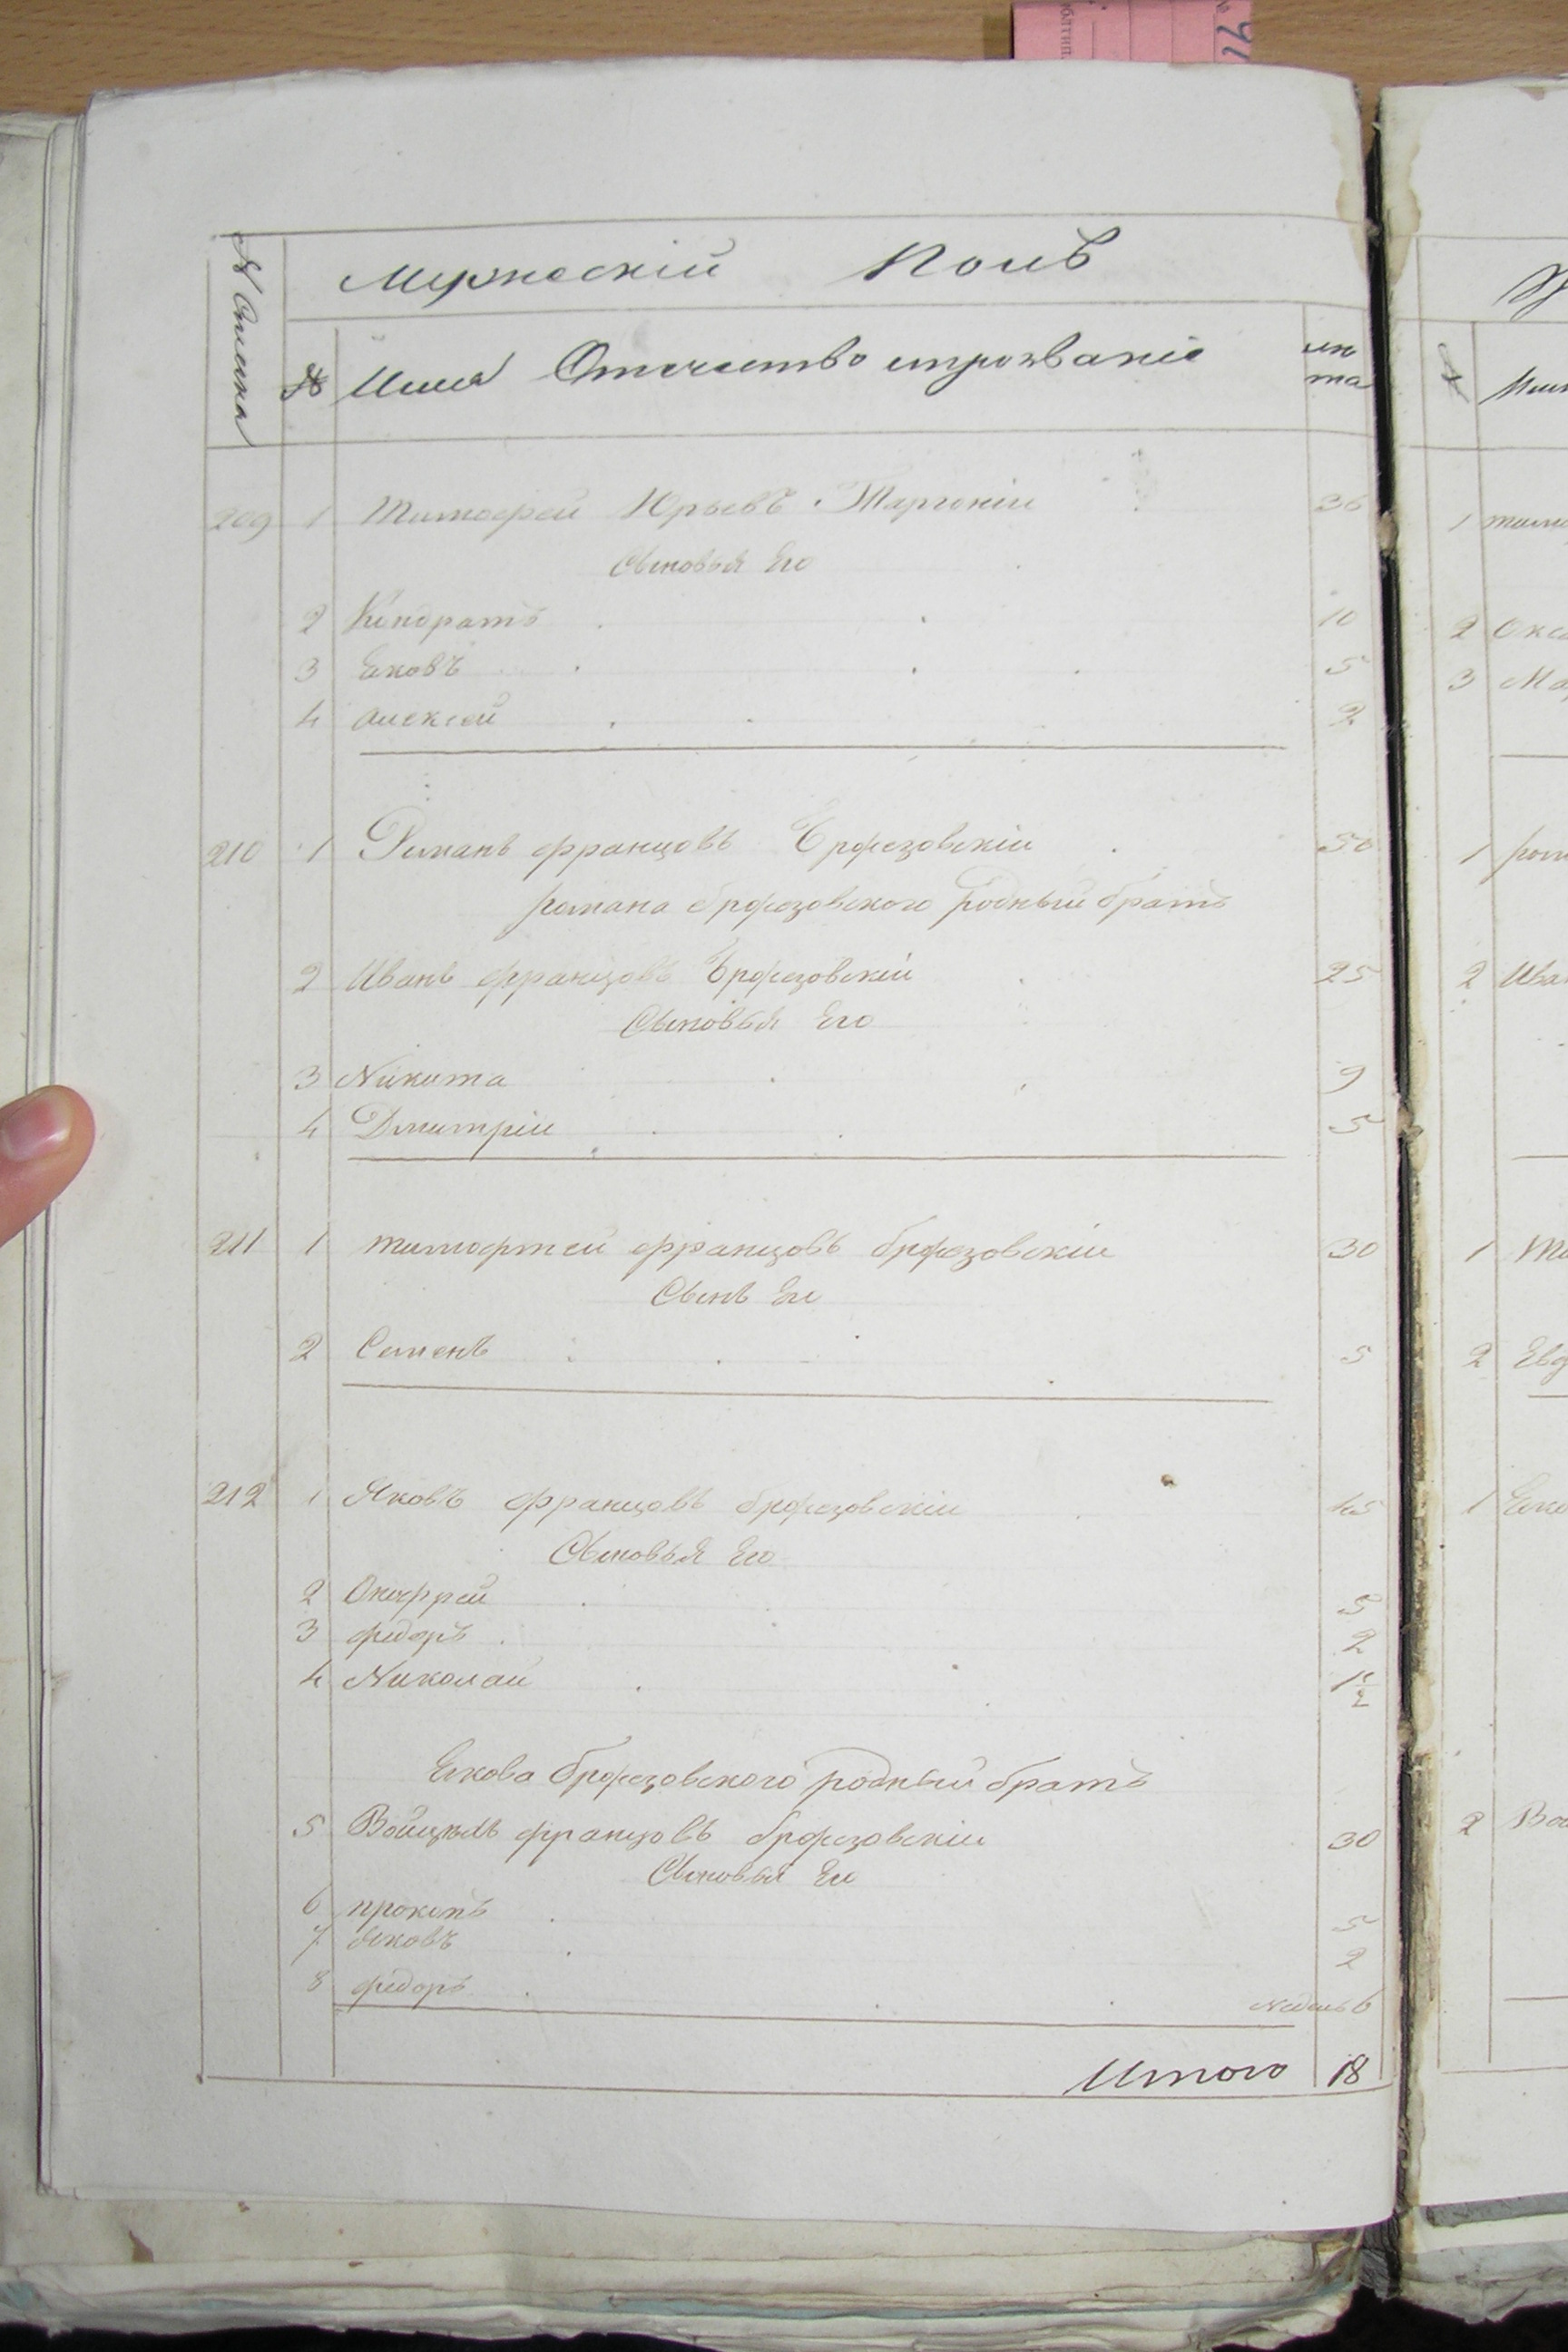 Мужескій Полъ
№ Списка
№ Имя Отечество ипрозваніе лѣта
209 1 Тимофей Юрьевъ Таргонїи 36
Сыновья Его
2 Кіндратъ 10
3 Еяковъ 5
4 алексей 2
210 1 Романъ францовъ брфезовскїи 50
романа брфезовского родныи братъ
2 Иванъ францовъ брфезовскїй 25
Сыновья Его
3 Никита 9
4 Дмитрїи 5
211 1 тимофтей францовъ брфезовскїи 30
Сынъ Его
2 Семенъ 5
212 1 Яковъ францовъ брфезовскїи 45
Сыновья Его
2 Онуфрей 5
3 федоръ 2
4 Николай 1½
Еякова брфезовского родныи братъ
5 францовъ брфезовскїи 30
Сыновья Его
6 прокопъ 5
7 Яковъ 2
8 федоръ недель 6
Итого 18
1
2
3
1
2 Ива
1
2 Евд
1
2